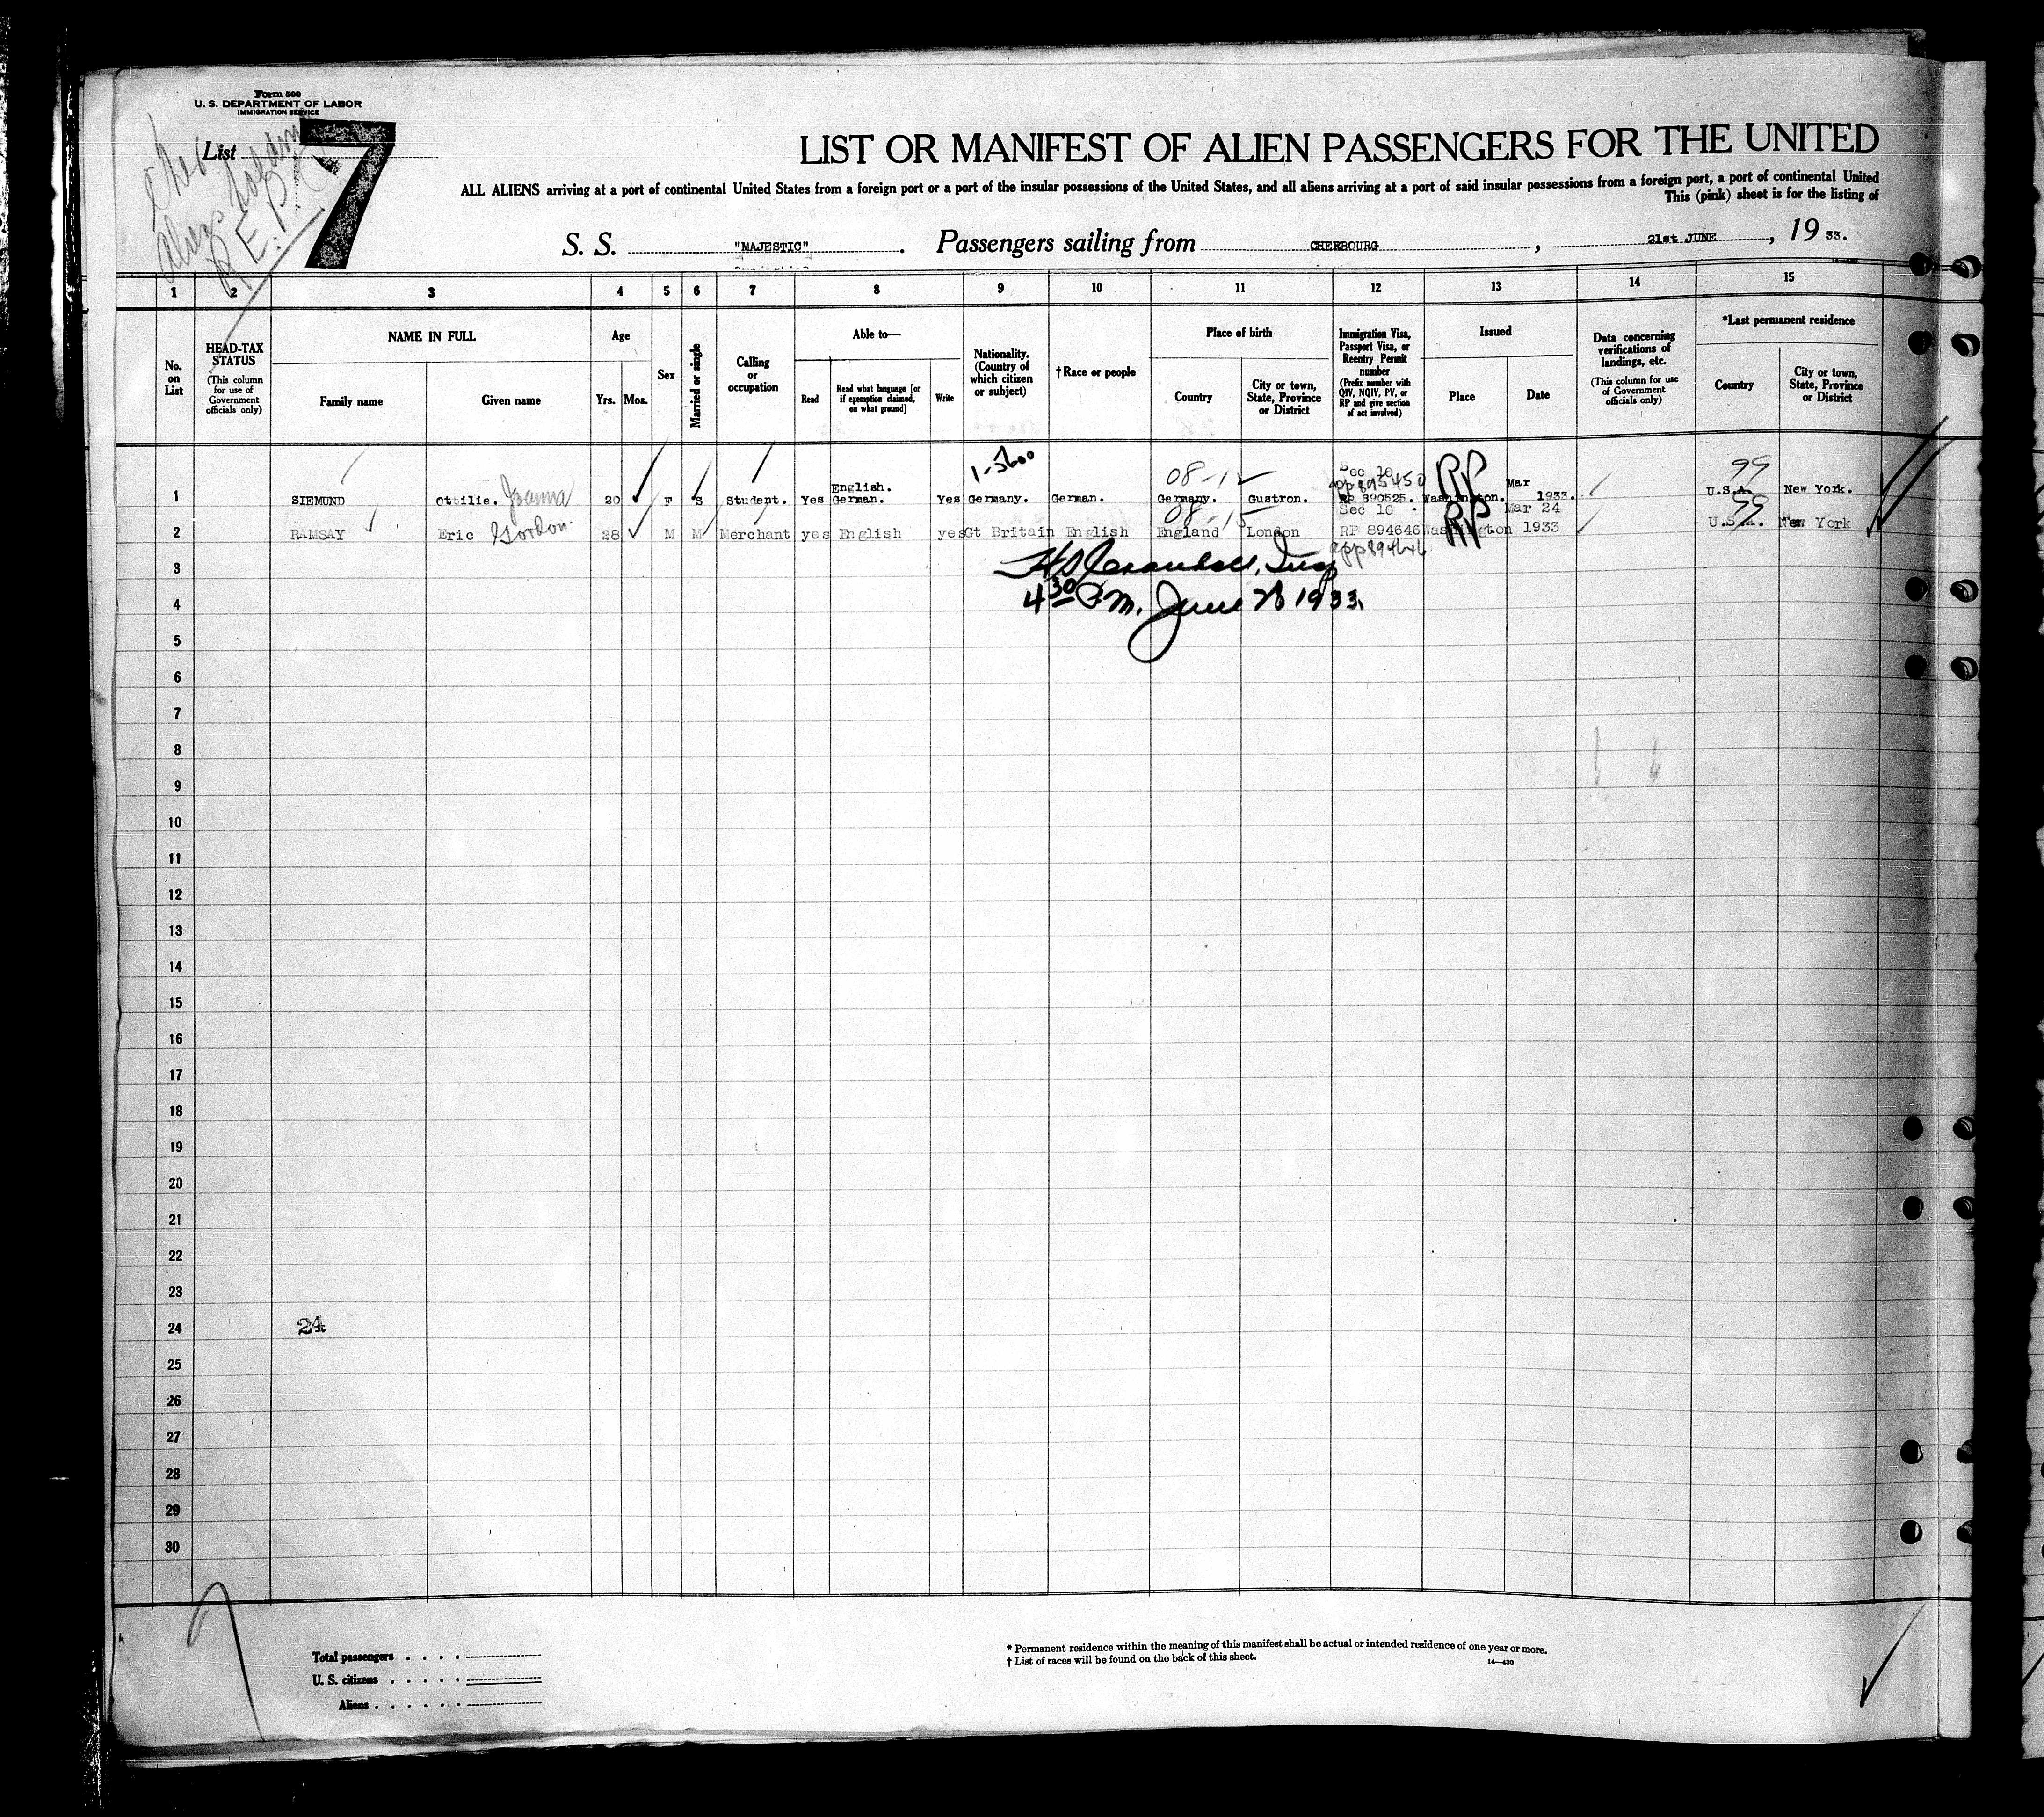 Form 500
U. S. DEPARTMENT OF LABOR
IMMIGRATION SERVICE
List 7
R E P
LIST OR MANIFEST OF ALIEN PASSENGERS FOR THE UNITED
ALL ALIENS arriving at a port of continental United States from a foreign port or a port of the insular possessions of the United States, and all aliens arriving at a port of said insular possessions from a foreign port, a port of continental United
This (pink) sheet is for the listing of
S. S. "MAJESTIC". Passengers sailing from CHERBOURG, 21st JUNE, 19 33.
1 2 3 4 5 6 7 8 9 10 11 12 13 14 15
No. on List
HEAD-TAX STATUS
(This column for use of Government officials only)
NAME IN FULL
Family name
Given name
Age
Yrs. Mos.
Sex
Married or single
Calling or occupation
Able to—
Read
Read what language [or if exemption claimed, on what ground]
Write
Nationality. (Country of which citizen or subject)
†Race or people
Place of birth
Country
City or town, State, Province or District
Immigration Visa, Passport Visa, or Reentry Permit number
(Prefix number with QIV, NQIV, PV, or RP and give section of act involved)
Issued
Place
Date
Data concerning verifications of landings, etc.
(This column for use of Government officials only)
*Last permanent residence
Country
City or town, State, Province or District
1-5600
08-12
99
English. Sec 10 Mar
app 895450
1 SIEMUND Ottilie. Joanna 20 F S Student. Yes German. Yes Germany. German. Germany. Gustron. RP 890525. Washington. RP 1933. U.S.A. New York.
08-15 Sec 10 Mar 24 99
2 RAMSAY Eric Gordon 28 M M Merchant yes English yes Gt Britain English England London RP 894646 Washington RP 1933 U.S.A. New York
app 894646
3
4 4 30 P.M. June 28 1933
5
6
7
8
9
10
11
12
13
14
15
16
17
18
19
20
21
22
23
24 24
25
26
27
28
29
30
Total passengers . . . .
U. S. citizens . . . . .
Aliens . . . . . .
* Permanent residence within the meaning of this manifest shall be actual or intended residence of one year or more.
† List of races will be found on the back of this sheet.
14—430